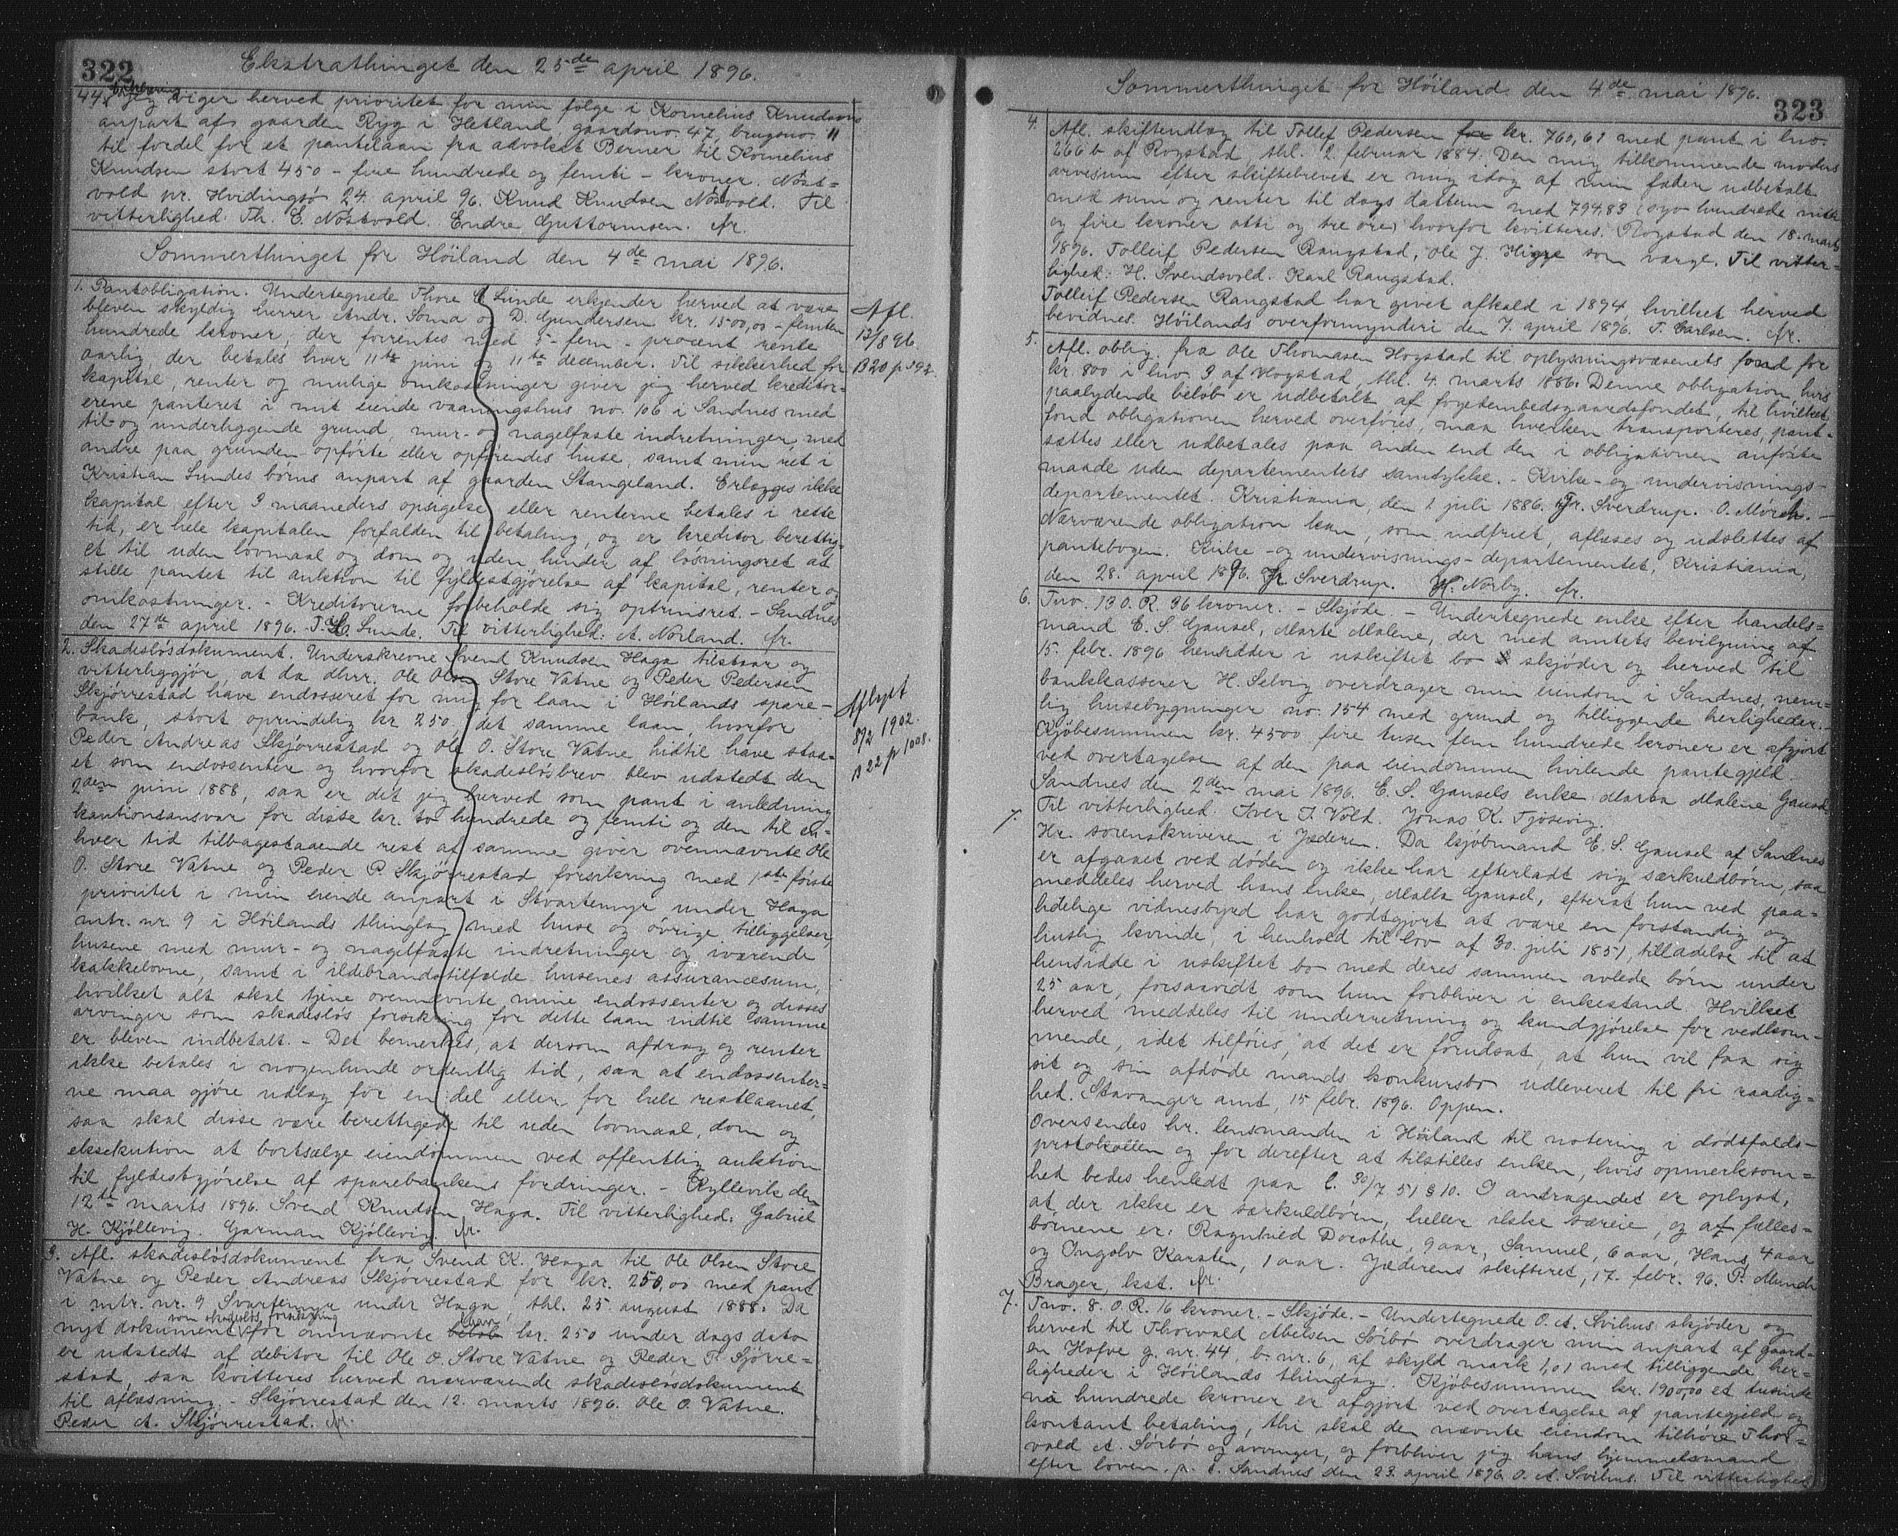 322
Ekstrathinget den 25de april 1896.
44. Jeg viger herved prioritet for min følge i Kornelius Knudsens
anpart af gaarden Ryg i Hetland, gaardsno. 47, brugsno. 11
til fordel for et pantelaan fra advokat Berner til Kornelius
Knudsen stort 450 – fire hundrede og femti – kroner. Nøst=
vold pr. Hvidingsø 24. april 96. Knud Knudsen Nøstvold. Til
vitterlighed: Th. E. Nøstvold. Endre Guttormsen. Ar.
Sommerthinget for Høiland den 4de mai 1896.
1. Pantobligation. Undertegnede Thore Lunde erkjender herved at være
bleven skyldig herrer Andr. Soma og D. Gundersen kr. 1500,00 – femten
hundrede kroner, der forrentes med 5 – fem – procent rente
aarlig der betales hver 11te juni og 11te december. Til sikkerhed for
kapital, renter og mulige omkostninger giver jeg herved kreditor=
erene panteret i mit eiende vaaningshus no. 106 i Sandnes med
til og underliggende grund, mur- og nagelfaste indretninger, med
andre paa grunden opførte eller opførendes huse, samt min ret i
Kristian Lundes børns anpart af gaarden Stangeland. Erlægges ikke
kapital efter 3 maaneders opsigelse eller renterne betales i rette
tid, er hele kapitalen forfalden til betaling, og er kreditor berettig=
et til uden lovmaal og dom og uden hinder af løsningsret at
stille pantet til auktion til fyldestgjørelse af kapital, renter og
omkostninger. – Kreditorerne forbeholde sig optrinsret. – Sandnes
den 27de april 1896. T. Lunde. Til vitterlighed: A. Norland. Ar.
Afl.
13/8 96.
B 20 p 392.
2. Skadesløsdokument. Underskrevne Svend Knudsen Haga tilstaar og
vitterliggjør, at da dhrr. Ole Olsen Store Vatne og Peder Pedersen
Skjørrestad have endosseret for mig for laan i Høilands spare=
bank, stort oprindelig kr. 250, det samme laan, hvorfor
Peder Andreas Skjørrestad og Ole O. Store Vatne hidtil have staa=
et som endossenter og hvorfor skadesløsbrev blev udstedt den
2den juni 1888, saa er det jeg herved som pant i anledning
kautionsansvar for disse kr. to hundrede og femti og den til en=
hver tid tilbagestaaende rest af samme giver ovennævnte Ole
O. Store Vatne og Peder P. Skjørrestad forsikring med 1ste første
prioritet i min eiende anpart i Svartemyr under Haga
mtr. nr. 9 i Høilands thinglag med huse og øvrige tilliggelser,
husene med mur- og nagelfaste indretninger og iværende
kakkelovne, samt i ildebrandstilfælde husenes assurancesum,
hvilket alt skal tjene ovennevnte mine endossenter og disses
arvinger som skadesløs forsikring for dette laan indtil samme
er bleven indbetalt. – Det bemerkes, at dersom afdrag og renter
ikke betales i nogenlunde ordentlig tid, saa at endossenter=
ne maa gjøre udlæg for en del eller for hele restlaanet,
saa skal disse være berettigede til uden lovmaal, dom og
eksekution at bortsælge eiendommen ved offentlig auktion
til fyldestgjørelse af sparebankens fordringer. – Kyllevik den
12te marts 1896. Svend Knudsen Haga. Til vitterlighed: Gabriel
H. Kjøllevig. Garman Kjøllevig. Ar.
Aflyst
8/2 1902.
B 22 p 1008.
3. Afl. skadesløsdokument fra Svend K. Haga til Ole Olsen Store
Vatne og Peder Andreas Skjørrestad for kr. 250,00 med pant
i mtr. nr. 9 Svartemyr under Haga, thl. 25. august 1888. Da
som skadesløs forsikring
nyt dokument for omnævnte beløb laan kr. 250 under dags dato
er udstedt af debitor til Ole O. Store Vatne og Peder P. Sjørre=
stad, saa kvitteres herved nærværende skadesløsdokument
til aflæsning. – Skjørrestad den 12. marts 1896. Ole O. Vatne.
Peder A. Skjørrestad. Ar.
Sommerthinget for Høiland den 4de mai 1896.
323
4. Afl. skifteudlæg til Tollef Pedersen for kr. 760,61 med pant i lno.
266 b af Rogstad, thl. 2. februar 1884. Den mig tilkommende moders
arvesum efter skiftebrevet er mig idag af min fader udbetalt
med sum og renter til dags dattum med 794,83 (syv hundrede nitti
og fire kroner otti og tre øre) hvorfor kvitteres. Rogstad den 18. marts
1896. Tolleif Pedersen Rangstad, Ole J. Higge som værge. Til vitter=
lighet: H. Svendsvold. Karl Rangstad.
Tolleif Pedersen Rangstad har givet afkald i 1894, hvilket herved
bevidnes. Høilands overformynderi den 7. april 1896. T. Carlsen. Ar.
5. Afl. oblig. fra Ole Thomasen Hogstad til oplysningsvæsenets fond for
kr. 800 i lno. 3 af Hogstad, thl. 4. marts 1886. Denne obligation, hvis
paalydende beløb er udbetalt af fogetembedsgaardsfondet, til hvilket
fond obligationen herved overføres, maa hverken transporteres, pant=
sættes eller udbetales paa anden end den i obligationen anførte
maade uden departementets samtykke. – Kirke- og undervisnings-
departementet. Kristiania, den 1 juli 1886. Jr. Sverdrup. O. Mørch. –
Nærværende obligation kan, som indfriet, aflæses og udslettes af
pantebogen. Kirke- og undervisnings-departementet, Kristiania,
den 28. april 1896. Jr Sverdrup. H. Norby. Ar.
6. Tno. 130. R. 36 kroner. – Skjøde – Undertegnede enke efter handels=
mand E. S. Gausel, Marte Malene, der med amtets bevilgning af
15. febr. 1896 hensidder i uskiftet bo skjøder og herved til
bankkasserer H. Selvig overdrager min eiendom i Sandnes, nem=
lig husebygninger no. 154 med grund og tilliggende herligheder.
Kjøbesummen kr. 4500 fire tusen fem hundrede kroner er afgjort
ved overtagelsen af den paa eiendommen hvilende pantegjeld.
Sandnes den 2den mai 1896. E. S. Gausels enke Marta Malene Gausel.
Til vitterlighed: Iver T. Vold. Jonas K. Tjøsvig.
Hr. sorenskriveren i Jæderen. Da kjøbmand E. S. Gausel af Sandnes
er afgaaet ved døden og ikke har efterladt sig særkuldbørn, saa
meddeles herved hans enke, Malla Gausel, efterat hun ved paa=
lidelige vidnesbyrd har godtgjort at være en forstandig og
huslig kvinde, i henhold til lov af 30. juli 1851, tilladelse til at
hensidde i uskiftet bo med deres sammen avlede børn under
25 aar, forsaavidt som hun forbliver i enkestand. Hvilket
herved meddeles til underretning og kundgjørelse for vedkom=
mende, idet tilføies, at det er forudsat, at hun vil faa sig
sit og sin afdøde mands konkursbo udleveret til fri raadig=
hed. Stavanger amt, 15 febr. 1896. Oppen.
Oversendes hr. lensmanden i Høiland til notering i dødsfalds=
protokollen og for derefter at tilstilles enken, hvis opmerksom=
hed bedes henledt paa l. 30/7 51 § 10. I andragendet er oplyst,
at der ikke er særkuldbørn, heller ikke særeie, og at fælles=
børnene er: Ragnhild Dorothe, 9 aar, Samuel, 6 aar, Hans, 4 aar
og Ingolv Karsten, 1 aar. Jæderens skifteret, 17. febr. 96. P. Munch
Brager, kst. Ar.
7. Tno. 8. O. R. 16 kroner. – Skjøde. – Undertegnede O. A. Svihus skjøder og
herved til Thorvald Abelsen Sørbø overdrager min anpart af gaard=
en Hofve g. nr. 44, b. nr. 6, af skyld mark 1,01 med tilliggende her=
ligheder i Høilands thinglag. Kjøbesummen kr. 1900,00 et tusinde
ni hundrede kroner er afgjort ved overtagelse af pantegjeld og
kontant betaling, thi skal den nævnte eiendom tilhøre Thor=
vald A. Sørbø og arvinger, og forbliver jeg hans hjemmelsmand
efter loven. p. t. Sandnes den 23. april 1896 O. A. Svihus. Til vitterlighed: